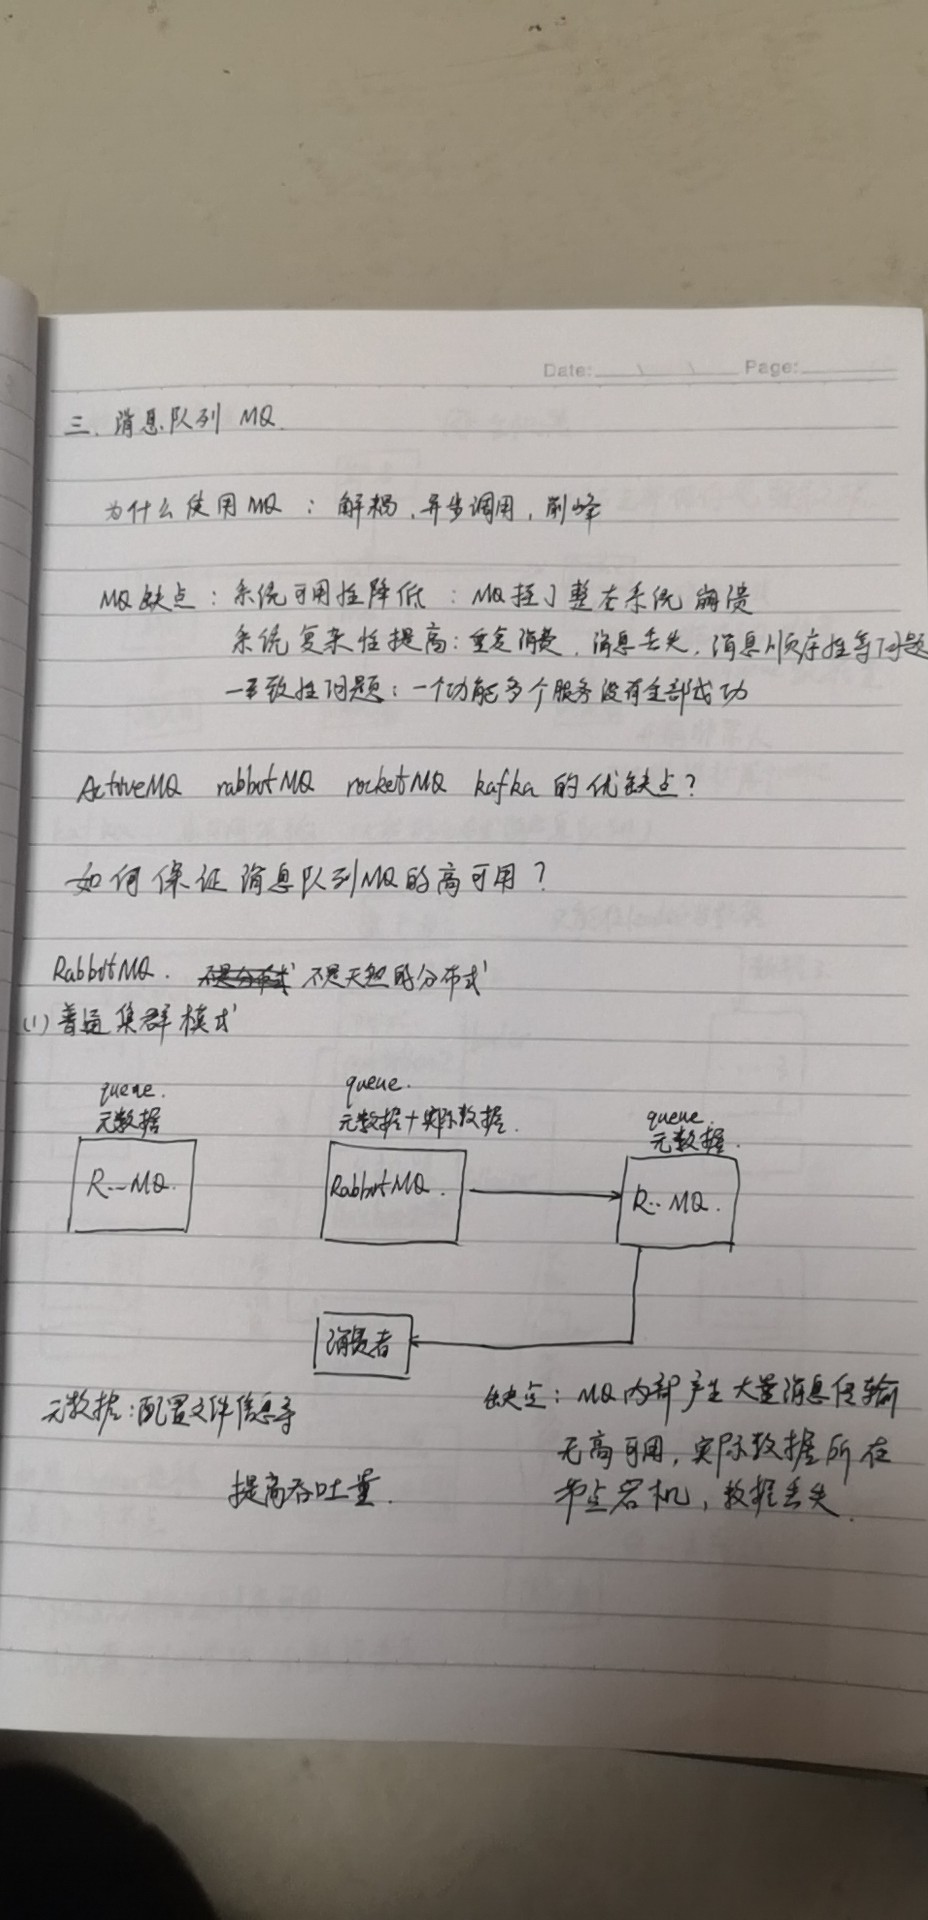 Date: Page:
三、消息队列 MQ.
为什么使用MQ : 解耦、异步调用、削峰
MQ缺点: 系统可用性降低 : MQ挂了整个系统崩溃
系统复杂性提高: 重复消费、消息丢失、消息顺序性等问题
一致性问题: 一个功能多个服务没有全部成功
ActiveMQ rabbitMQ rocketMQ kafka 的优缺点?
如何保证消息队列MQ的高可用?
RabbitMQ. 不是分布式 不是天然的分布式
(1) 普通集群模式
queue. queue. queue.
元数据 元数据+实际数据. 元数据.
R...MQ. RabbitMQ. R..MQ.
消费者
元数据:配置文件信息等
提高吞吐量.
缺点: MQ内部产生大量消息传输
无高可用,实际数据所在
节点宕机,数据丢失.